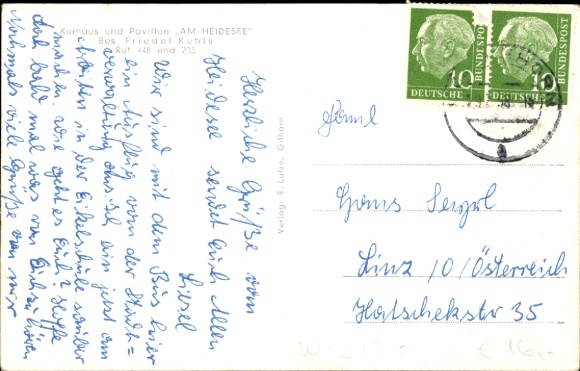 Kurhaus und Pavillon „AM HEIDESEE"
Bes. Friedel Kuhls
Ruf 448 und 205
Herzliche Grüße vom
Heidesee sendet Euch Allen
Liesel
Wir sind mit dem Bus hier
ein Ausflug von der Stadt=
verwaltung aus. Ich bin jetzt am
in der sauber
machen. Wie geht es Euch? Hoffe
doch bald mal was von Euch zu hören
Nochmals viele Grüße von mir
Verlag: E. Lutze, Gifhorn
10
DEUTSCHE
BUNDESPOST
10
DEUTSCHE
BUNDESPOST
a
Faml
Hans
Linz /O/Österreich
Hatschekstr 35
€ 16,-